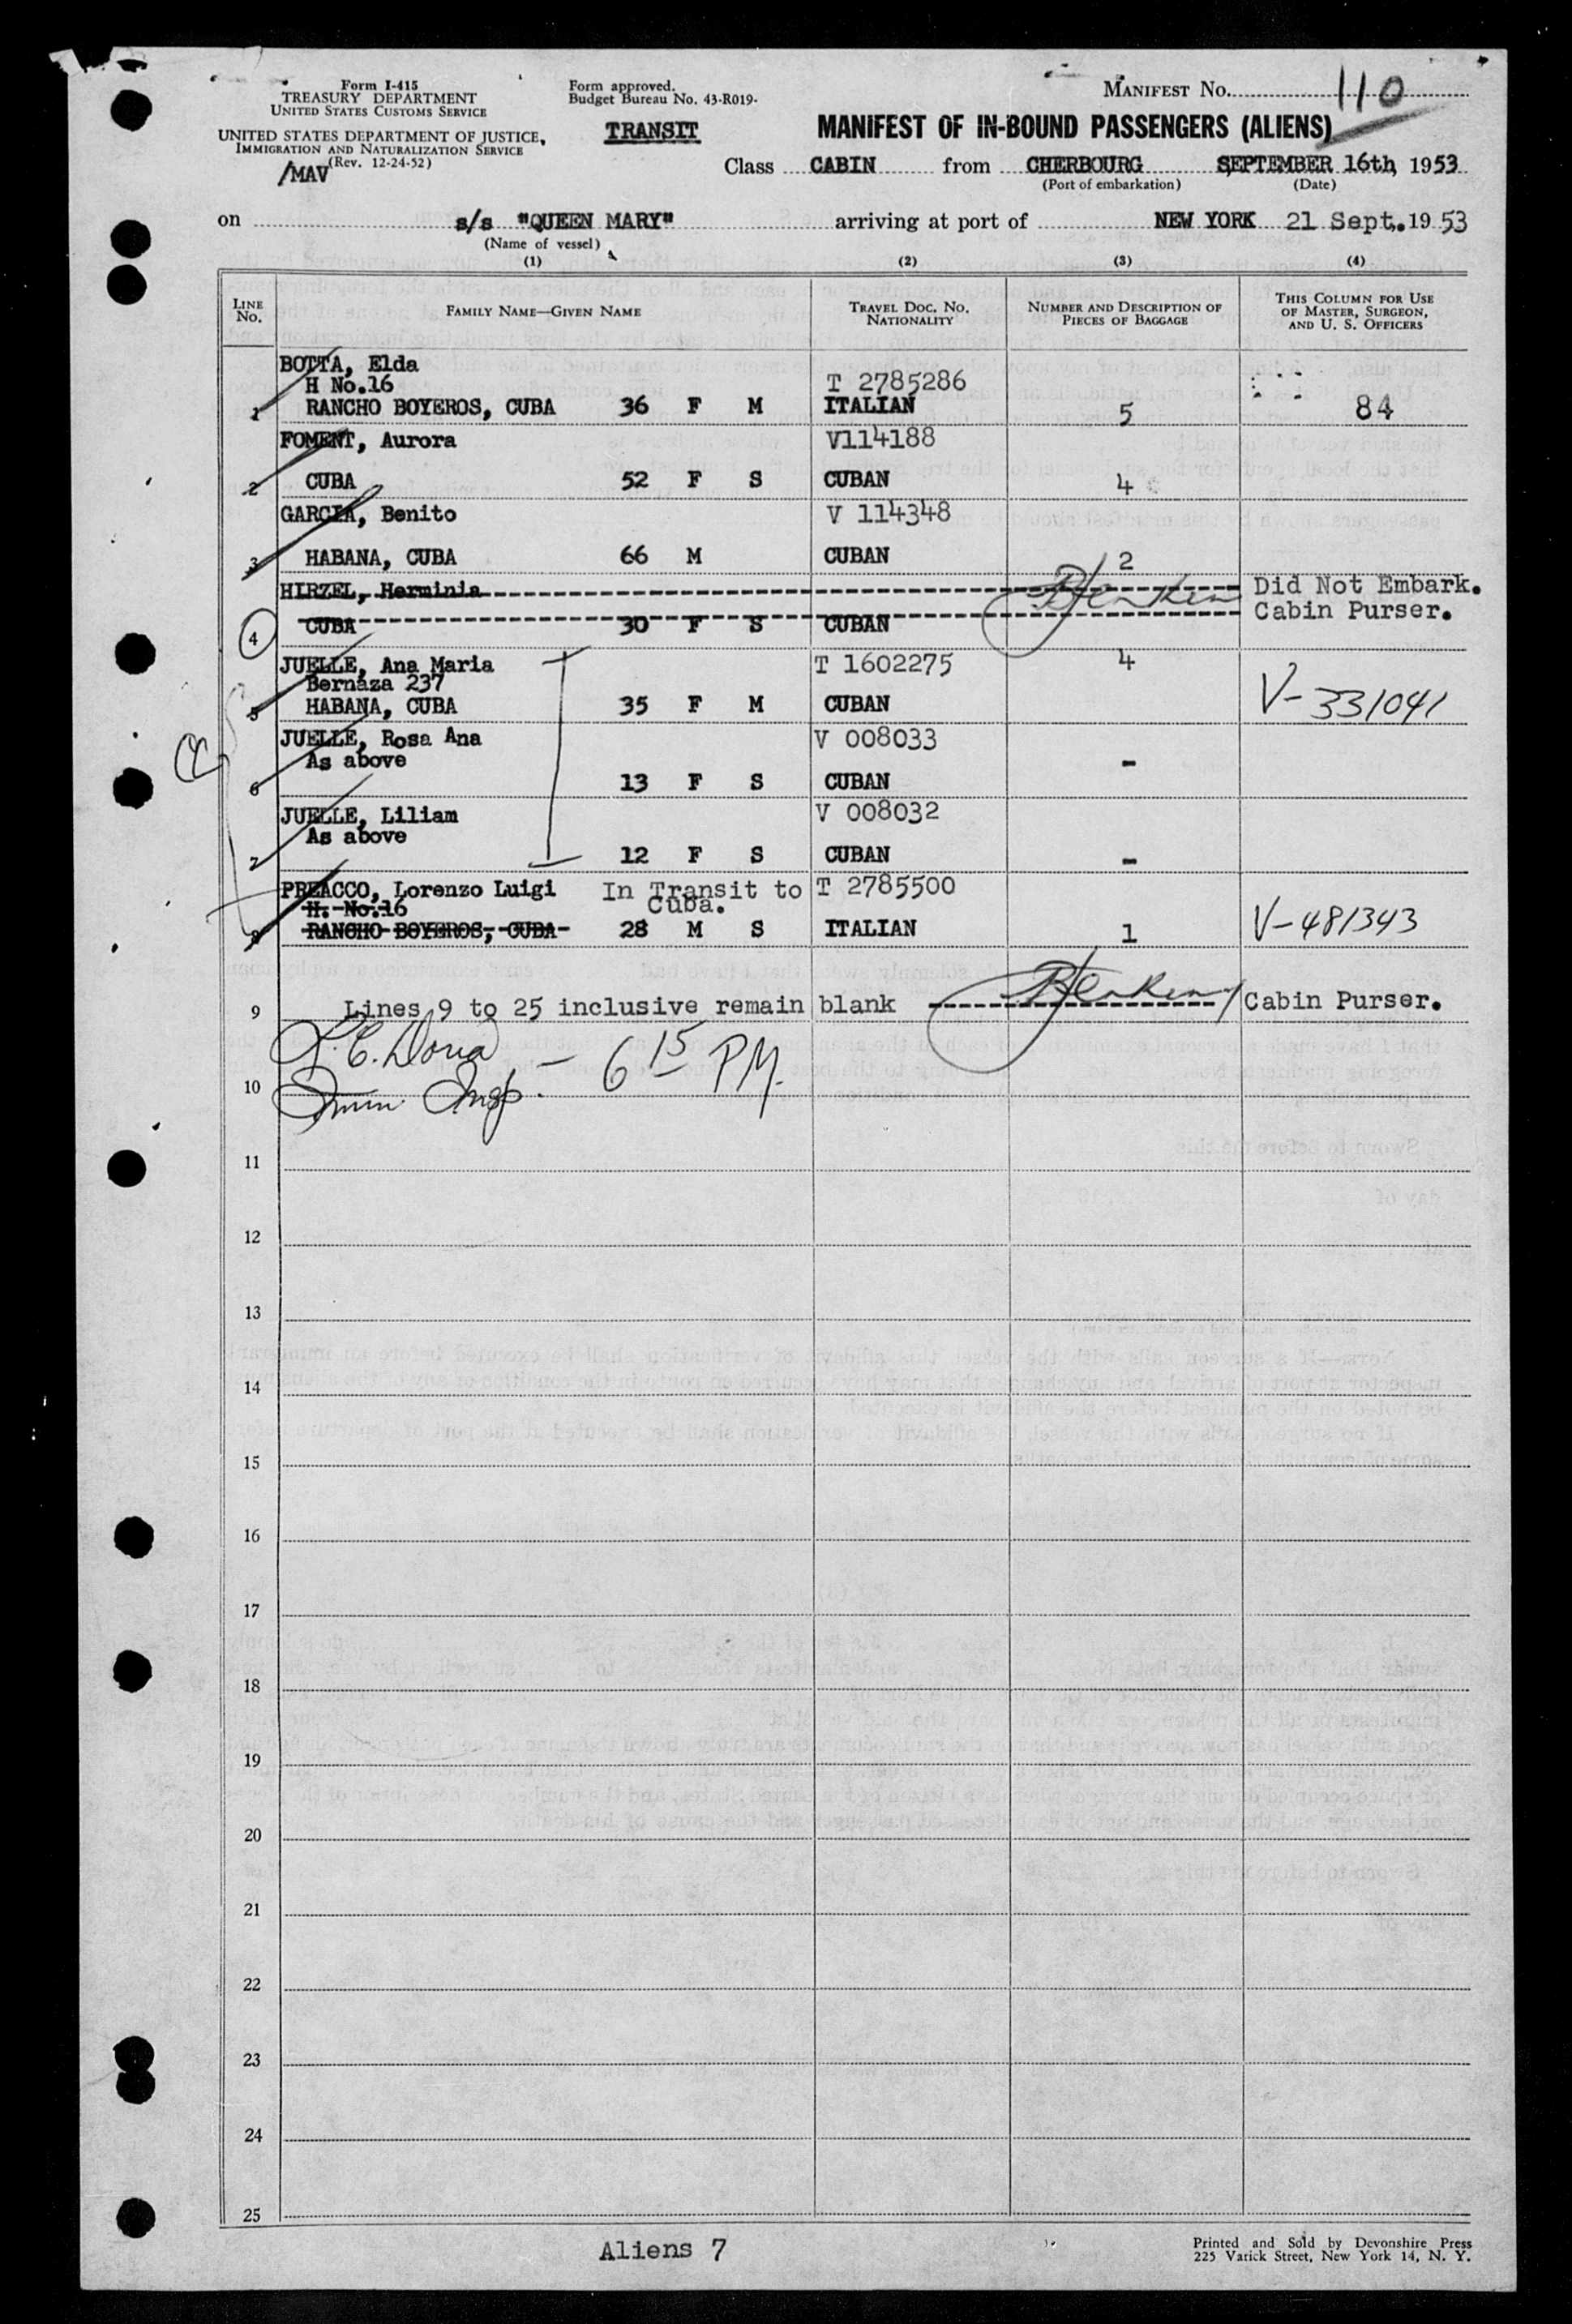 Form I-415
TREASURY DEPARTMENT
UNITED STATES CUSTOMS SERVICE
UNITED STATES DEPARTMENT OF JUSTICE,
IMMIGRATION AND NATURALIZATION SERVICE
(Rev. 12-24-52)
/MAV
Form approved.
Budget Bureau No. 43-R019-
TRANSIT
MANIFEST NO. 110
MANIFEST OF IN-BOUND PASSENGERS (ALIENS)
Class CABIN from CHERBOURG SEPTEMBER 16th, 1953
(Port of embarkation) (Date)
on s/s "QUEEN MARY" arriving at port of NEW YORK 21 Sept. 1953
(Name of vessel)
(1) (2) (3) (4)
LINE No. FAMILY NAME—GIVEN NAME TRAVEL DOC. NO. NATIONALITY NUMBER AND DESCRIPTION OF PIECES OF BAGGAGE THIS COLUMN FOR USE OF MASTER, SURGEON, AND U. S. OFFICERS
BOTTA, Elda
H No.16 T 2785286
1 RANCHO BOYEROS, CUBA 36 F M ITALIAN 5 84
FOMENT, Aurora V114188
2 CUBA 52 F S CUBAN 4
GARCIA, Benito V 114348
3 HABANA, CUBA 66 M CUBAN 2
HIRZEL, Herminia Did Not Embark.
Cabin Purser.
4 CUBA 30 F S CUBAN
JUELLE, Ana Maria T 1602275 4
Bernaza 237
5 HABANA, CUBA 35 F M CUBAN V-331041
JUELLE, Rosa Ana V 008033
As above -
6 13 F S CUBAN
JUELLE, Liliam V 008032
As above
7 12 F S CUBAN -
PREACCO, Lorenzo Luigi In Transit to Cuba. T 2785500
H. No.16
8 RANCHO BOYEROS, CUBA 28 M S ITALIAN 1 V-481343
9 Lines 9 to 25 inclusive remain blank Cabin Purser.
- 6 15 PM.
10 Imm. Insp.
11
12
13
14
15
16
17
18
19
20
21
22
23
24
25
Aliens 7
Printed and Sold by Devonshire Press
225 Varick Street, New York 14, N. Y.